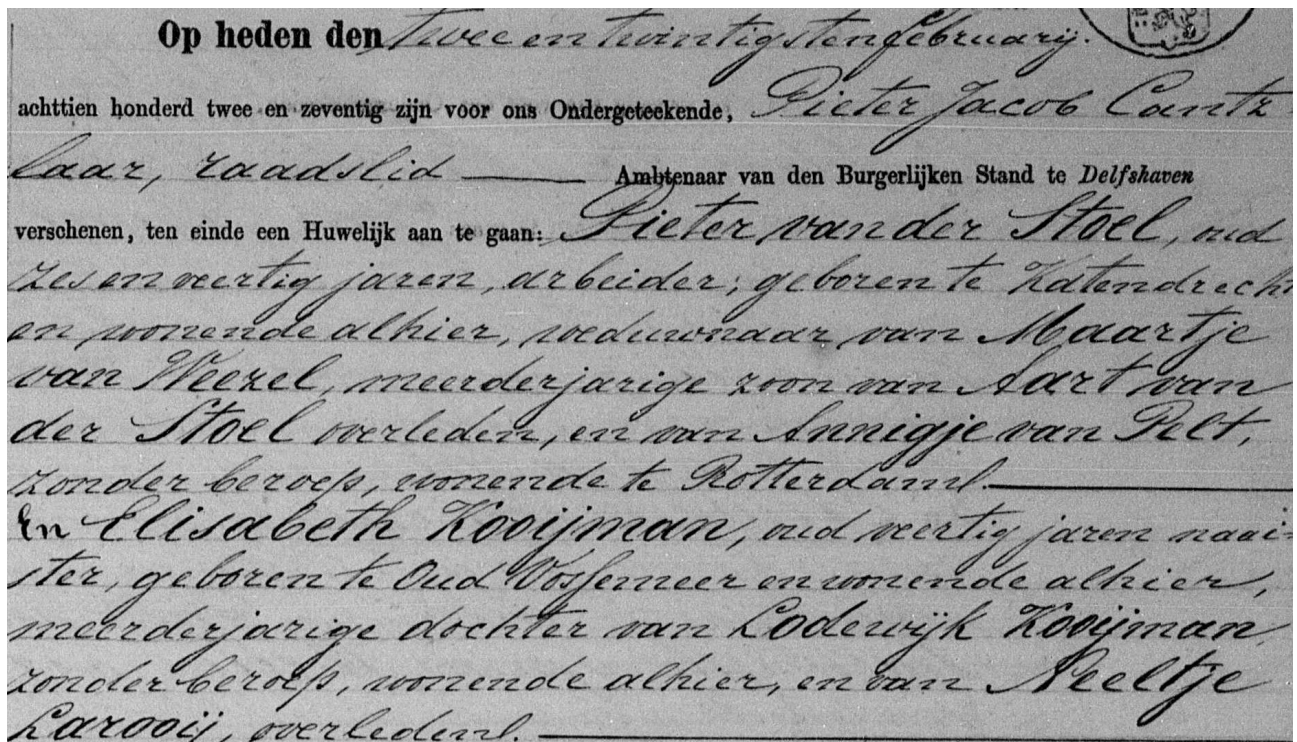 Op heden den twee en twintigsten february.
achttien honderd twee en zeventig zijn voor ons Ondergeteekende, Pieter Jacob Cantz
laar, raadslid Ambtenaar van den Burgerlijken Stand te Delfshaven
verschenen, ten einde een Huwelijk aan te gaan: Pieter van der Stoel, oud
zes en veertig jaren, arbeider, geboren te Katendrecht
en wonende alhier, weduwnaar van Maartje
van Weezel, meerderjarige zoon van Aart van
der Stoel overleden, en van Annigje van Pelt,
zonder beroep, wonende te Rotterdam.
En Elisabeth Kooijman, oud veertig jaren naai-
ster, geboren te Oud Vossemeer en wonende alhier,
meerderjarige dochter van Lodewijk Kooijman,
zonder beroep, wonende alhier, en van Neeltje
Larooij, overleden.